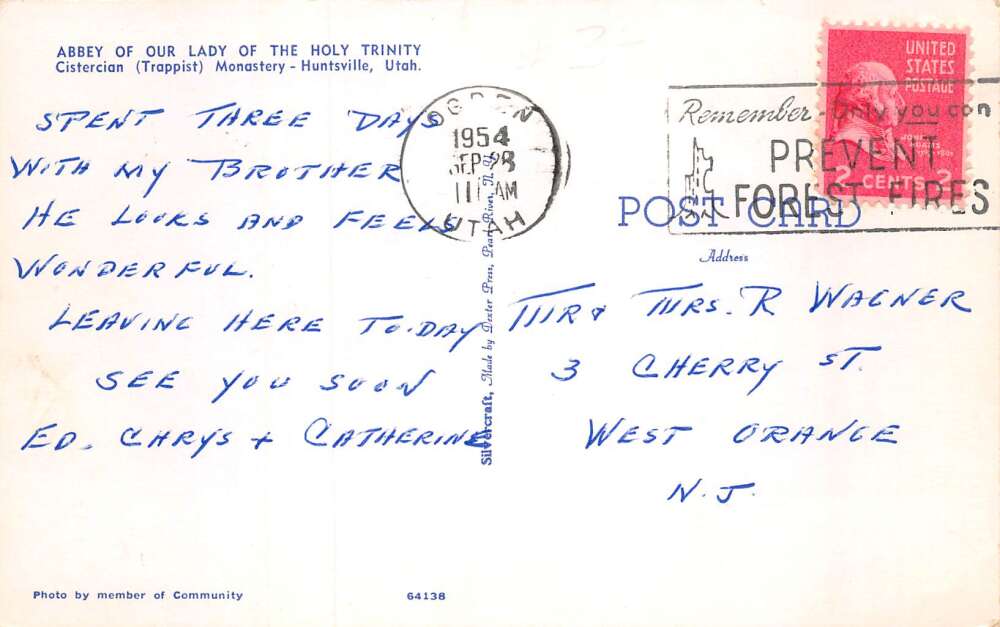 ABBEY OF OUR LADY OF THE HOLY TRINITY
Cistercian (Trappist) Monastery - Huntsville, Utah.
SPENT THREE DAYS
WITH MY BROTHER
HE LOOKS AND FEELS
WONDERFUL.
LEAVING HERE TO-DAY
SEE YOU SOON
ED. CHRYS + CATHERINE
Photo by member of Community
64138
OGDEN
1954
SEP 28
11 AM
UTAH
Silvercraft, Made by Dexter Press, Pearl River, N.Y.
UNITED
STATES
POSTAGE
JOHN
ADAMS
2 CENTS 2
Remember - Only you can
PREVENT
FOREST FIRES
POST CARD
Address
MR & MRS. R WAGNER
3 CHERRY ST.
WEST ORANGE
N.J.